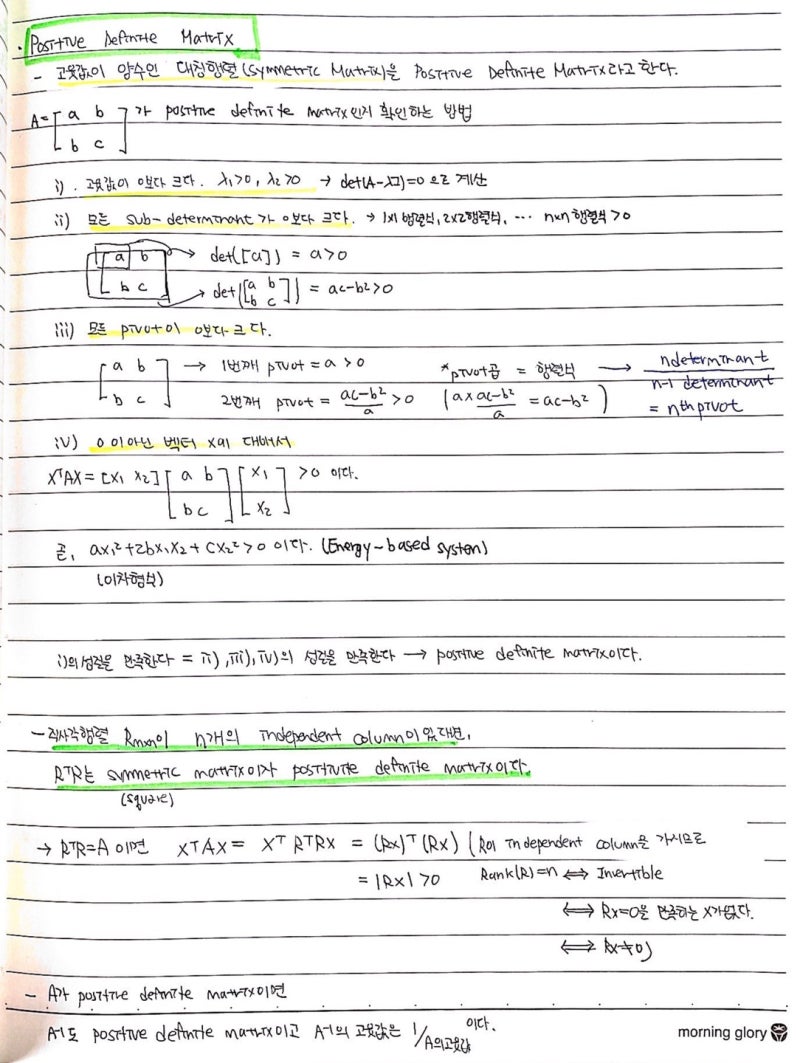 · Positive Definite Matrix
- 고윳값이 양수인 대칭행렬(Symmetric Matrix)을 Positive Definite Matrix라고 한다.
A=[a b
b c]가 positive definite matrix인지 확인하는 방법
i). 고윳값이 0보다 크다. λ1>0, λ2>0 → det(A-λI)=0 으로 계산
ii) 모든 sub-determinant가 0보다 크다. → 1x1 행렬식, 2x2행렬식, ... nxn 행렬식 >0
[a b → det([a]) = a>0
b c] → det([a b
b c]) = ac-b²>0
iii) 모든 pivot이 0보다 크다.
[a b
b c] → 1번째 pivot = a >0
2번째 pivot = (ac-b²)/a >0
*pivot곱 = 행렬식 (a x (ac-b²)/a = ac-b²)
→ n determinant / n-1 determinant = nth pivot
iv) 0이 아닌 벡터 x에 대해서
XᵀAX = [x1 x2][a b
b c][x1
x2] >0 이다.
곧, ax1²+2bx1x2+cx2²>0 이다. (Energy-based system)
(이차형식)
i)의 성질을 만족한다 = ii), iii), iv)의 성질을 만족한다 → positive definite matrix이다.
- 직사각행렬 Rmxn이 n개의 independent column이 있다면,
RᵀR는 symmetric matrix이자 positive definite matrix이다.
(square)
→ RᵀR=A 이면 XᵀAX = XᵀRᵀRX = (Rx)ᵀ(Rx) (R이 independent column을 가지므로
= |Rx| >0 Rank(R)=n ⟺ Invertible
⟺ Rx=0을 만족하는 x가 없다.
⟺ Rx≠0)
- A가 positive definite matrix이면
A⁻¹도 positive definite matrix이고 A⁻¹의 고윳값은 1/A의고윳값 이다.
morning glory